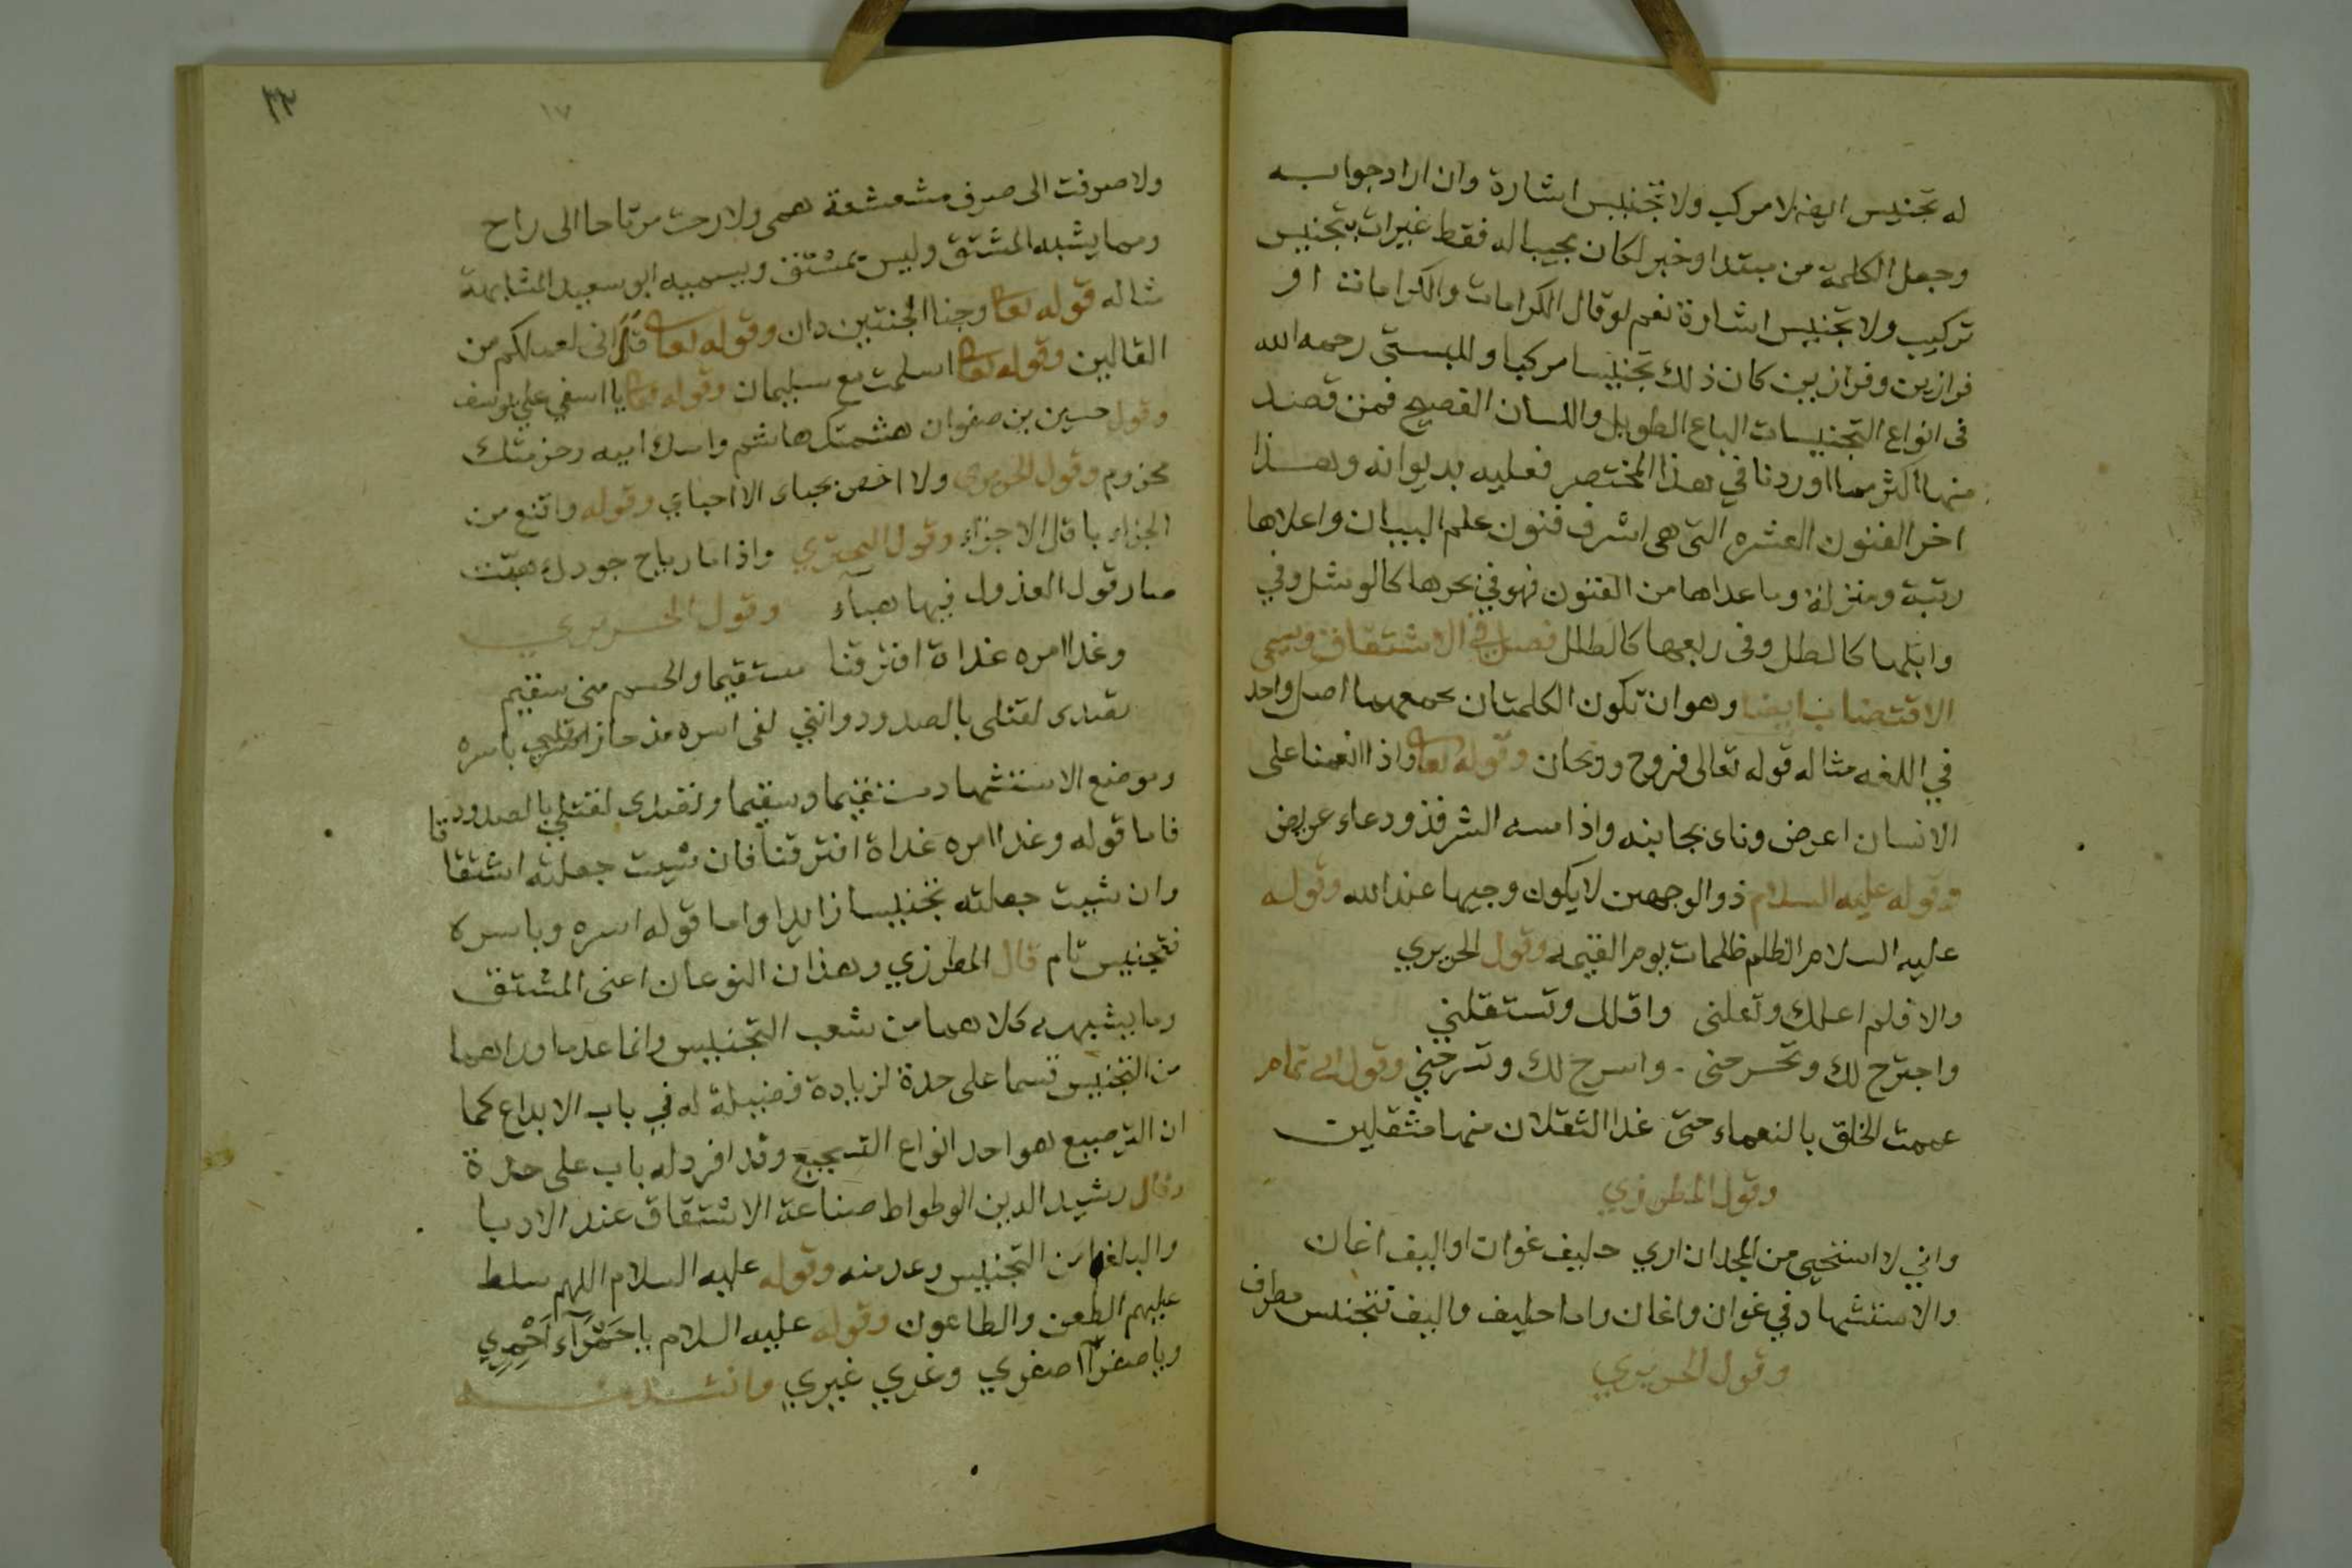 له تجنيس ايضا لا مركب ولا تجنيس اشارة وان اراد جوابه
وجعل الكلمة من مبتدا وخبر لكان مجيبا له فقط غيرات بتجنيس
تركيب ولا تجنيس اشارة نعم لو قال الكرامات والكراماتت او
فرازين وفرازين كان ذلك تجنيسا مركبا وللبستى رحمه الله
فى انواع التجنيسات الباع الطويل واللسان الفصيح فمن قصد
منها اكثر مما اوردنا في هذا المختصر فعليه بديوانه وهذا
اخر الفنون العشره التى هى اشرف فنون علم البيان واعلاها
رتبة ومنزلة وما عداها من الفنون فهو في بحرها كالوشل وفي
وابلها كالطل وفى ربعها كالطلل فصل في الاشتقاق ويسمى
الاقتضاب ايضا وهو ان تكون الكلمتان يجمعهما اصل واحد
في اللغه مثاله قوله تعالى فروح وريحان وقوله تعا واذا انعمنا على
الانسان اعرض وناى بجانبه واذا مسه الشر فذو دعاء عريض
وقوله عليه السلام ذو الوجهين لا يكون وجيها عند الله وقوله
عليه السلام الظلم ظلمات يوم القيمه وقول الحريري
والا فلم اعلك وتعلنى واقلك وتستقلني
واجترح لك وتجرحنى واسرح لك وتسرحني وقول ابي تمام
عممت الخلق بالنعماء حتى غدا الثقلان منها مثقلين
وقول المطرزي
واني لا استحيى من المجد ان اري حليف غوان او اليف اغان
والاستشهاد في غوان واغان واما حليف واليف فتجنيس مطرف
وقول الحريري
٢٣
١٧
ولا صرفت الى صرف مشعشعة همى ولا رحت مرتاحا الى راح
ومما يشبه المشتق وليس بمشتق ويسميه ابو سعيد المشابهة
مثاله قوله تعا وجنا الجنتين دان وقوله تعا قال انى لعملكم من
القالين وقوله تعا اسلمت مع سليمان وقوله تعا يا اسفي على يوسف
وقول حسين بن صفوان هشمتك هاشم وامك اميه وخزمتك
مخزوم وقول الحريرى ولا اخص بحباى الا احباي وقوله واقنع من
الجزاء باقل الاجزاء وقول البحتري واذا ما رياح جودك هبت
صار قول العذول فيها هبآء وقول الحريري
وغدا امره غداة افترقنا مستقيما والجسم منى سقيم
تصدى لقتلى بالصدود وانني لفى اسره مذ حاز قلبي باسره
وموضع الاستشهاد مستقيما وسقيما وتصدى لقتلي بالصدود
فاما قوله وغدا امره غداة افترقنا فان شيت جعلته اشتقاقا
وان شيت جعلته تجنيسا زايدا واما قوله اسره وباسره
فتجنيس تام قال المطرزي وهذان النوعان اعنى المشتق
وما يشبهه كلاهما من شعب التجنيس وانما عدما وراهما
من التجنيس قسما على حدة لزيادة فضيلة له في باب الابداع كما
ان الترصيع هو احد انواع التسجيع وقد افرد له باب على حدة
وقال رشيد الدين الوطواط صناعة الاشتقاق عند الادبا
والبلغا من التجنيس وعد منه وقوله عليه السلام اللهم سلط
عليهم الطعن والطاعون وقوله عليه السلام يا حَمْرَآء احْمِرِي
ويا صفرآ اصفري وغري غيري وانشد